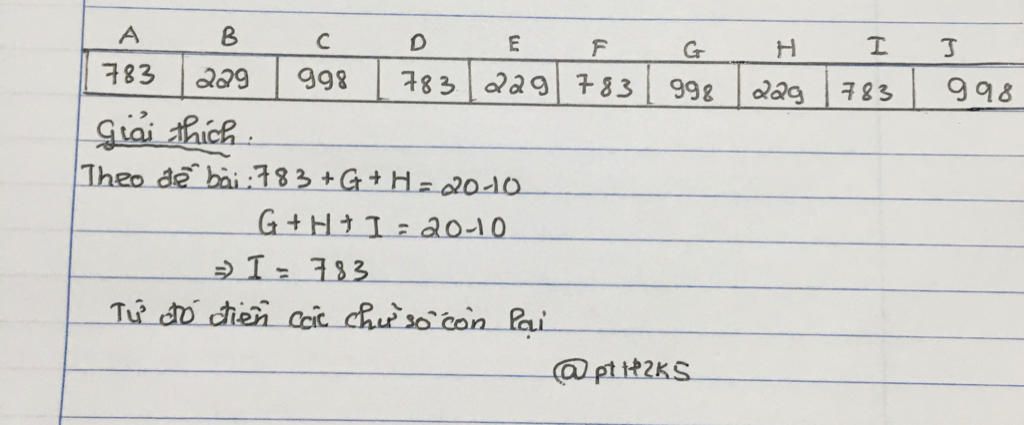 A B C D E F G H I J
783 229 998 783 229 783 998 229 783 998
Giải thích.
Theo đề bài: 783 + G + H = 2010
G + H + I = 2010
⇒ I = 783
Từ đó điền các chữ số còn lại
@ptH2K5